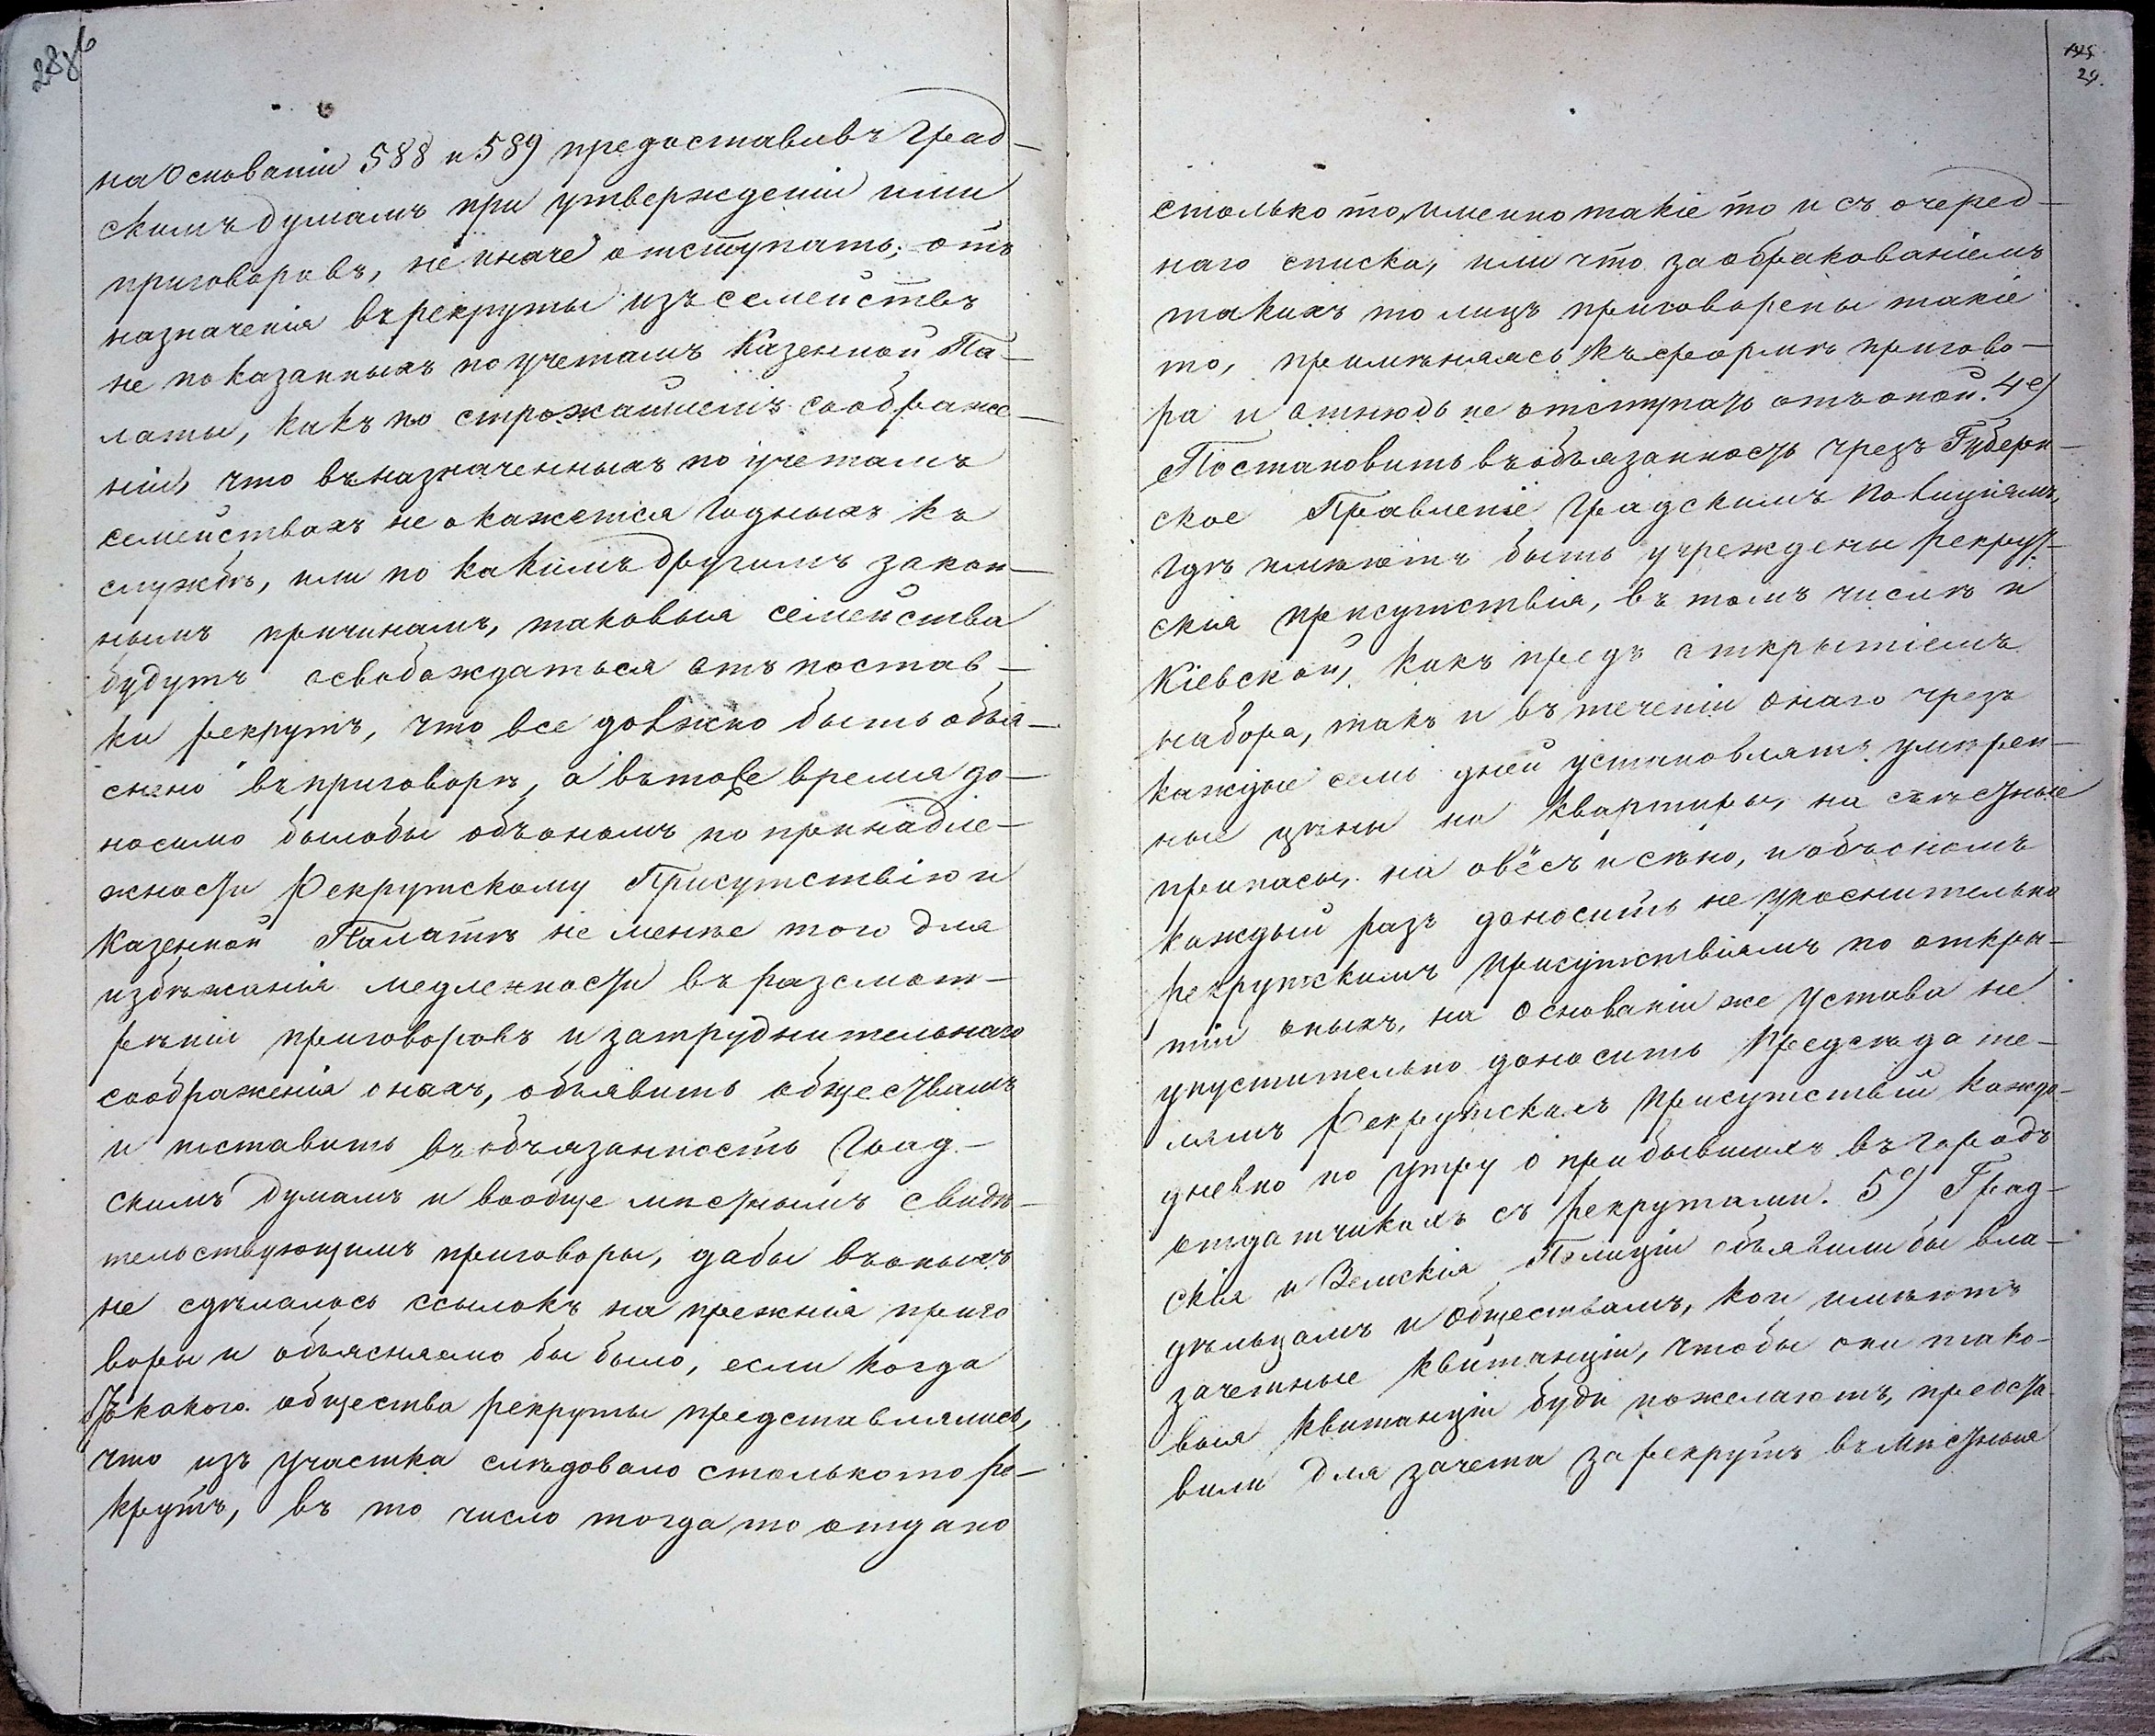 на Основаніи 588 и 589 предоставивъ Град-
скимъ думамъ при утвержденіи ими
приговоровъ, не иначе отступать, отъ
назначенія въ рекруты изъ семействъ
не показанныхъ по учетамъ Казенной Па-
латы, какъ по строжайшемъ соображе-
ніи, что въ назначенныхъ по учетамъ
семействахъ не окажется годныхъ къ
службѣ, или по какимъ другимъ закон-
нымъ причинамъ, таковыя семейства
будутъ освобождаться отъ постав-
ки рекрутъ, что все должно быть объя-
снено въ приговорѣ, а въ тоже время до-
носимо былобы объ ономъ по принадле-
жности Рекрутскому Присутствію и
Казенной Палатѣ не менѣе того для
избѣжанія медленности въ разсмот-
рѣніи приговоровъ и затруднительнаго
соображенія онахъ, объявить обществамъ
и поставить въ объязанность Град-
скимъ думамъ и вообще мѣстнымъ свидѣ-
тельствующимъ приговоры, дабы въ оныхъ
не сдѣлалось ссылокъ на прежнія приго
воры и объясняемо бы было, если когда
съ какого общества рекруты представлялись,
что изъ участка слѣдовало столькото ре-
крутъ, въ то число тогда то отдано
288б
29.
столько то, именно такіе то и съ очеред-
наго списка, или что за обракованіемъ
такихъ то лицъ приговорены такіе
то, примѣняясь къ формѣ пригово-
ра и отнюдь не отступать отъ оной. 4е)
Постановить въ объязанность чрезъ Губерн-
ское Правленіе Градскимъ Полиціямъ,
гдѣ имѣютъ быть учреждены рекрут-
скія присутствія, въ томъ числѣ и
Кіевской, какъ предъ открытіемъ
набора, такъ и въ теченіи онаго чрезъ
каждые семь дней установлять умѣрен-
ные цѣны на квартиры, на съѣстные
припасы, на овёсъ и сѣно, и объ ономъ
каждый разъ доносить не укоснительно
рекрутскимъ присутствіямъ по откры-
тіи оныхъ, на основаніи же устава не
упустительно доносить Предсѣдате-
лямъ Рекрутскихъ присутствій каждо-
дневно по утру о прибывшихъ въ городъ
отдатчикахъ съ рекрутами. 5е) Град-
скія и Земскія Полиціи объявили бы вла-
дѣльцамъ и обществамъ, кои имѣютъ
зачетные квитанціи, чтобы они тако-
выя квитанціи буди пожелаютъ, предста
вили для зачета за рекрутъ въ Мѣстныя